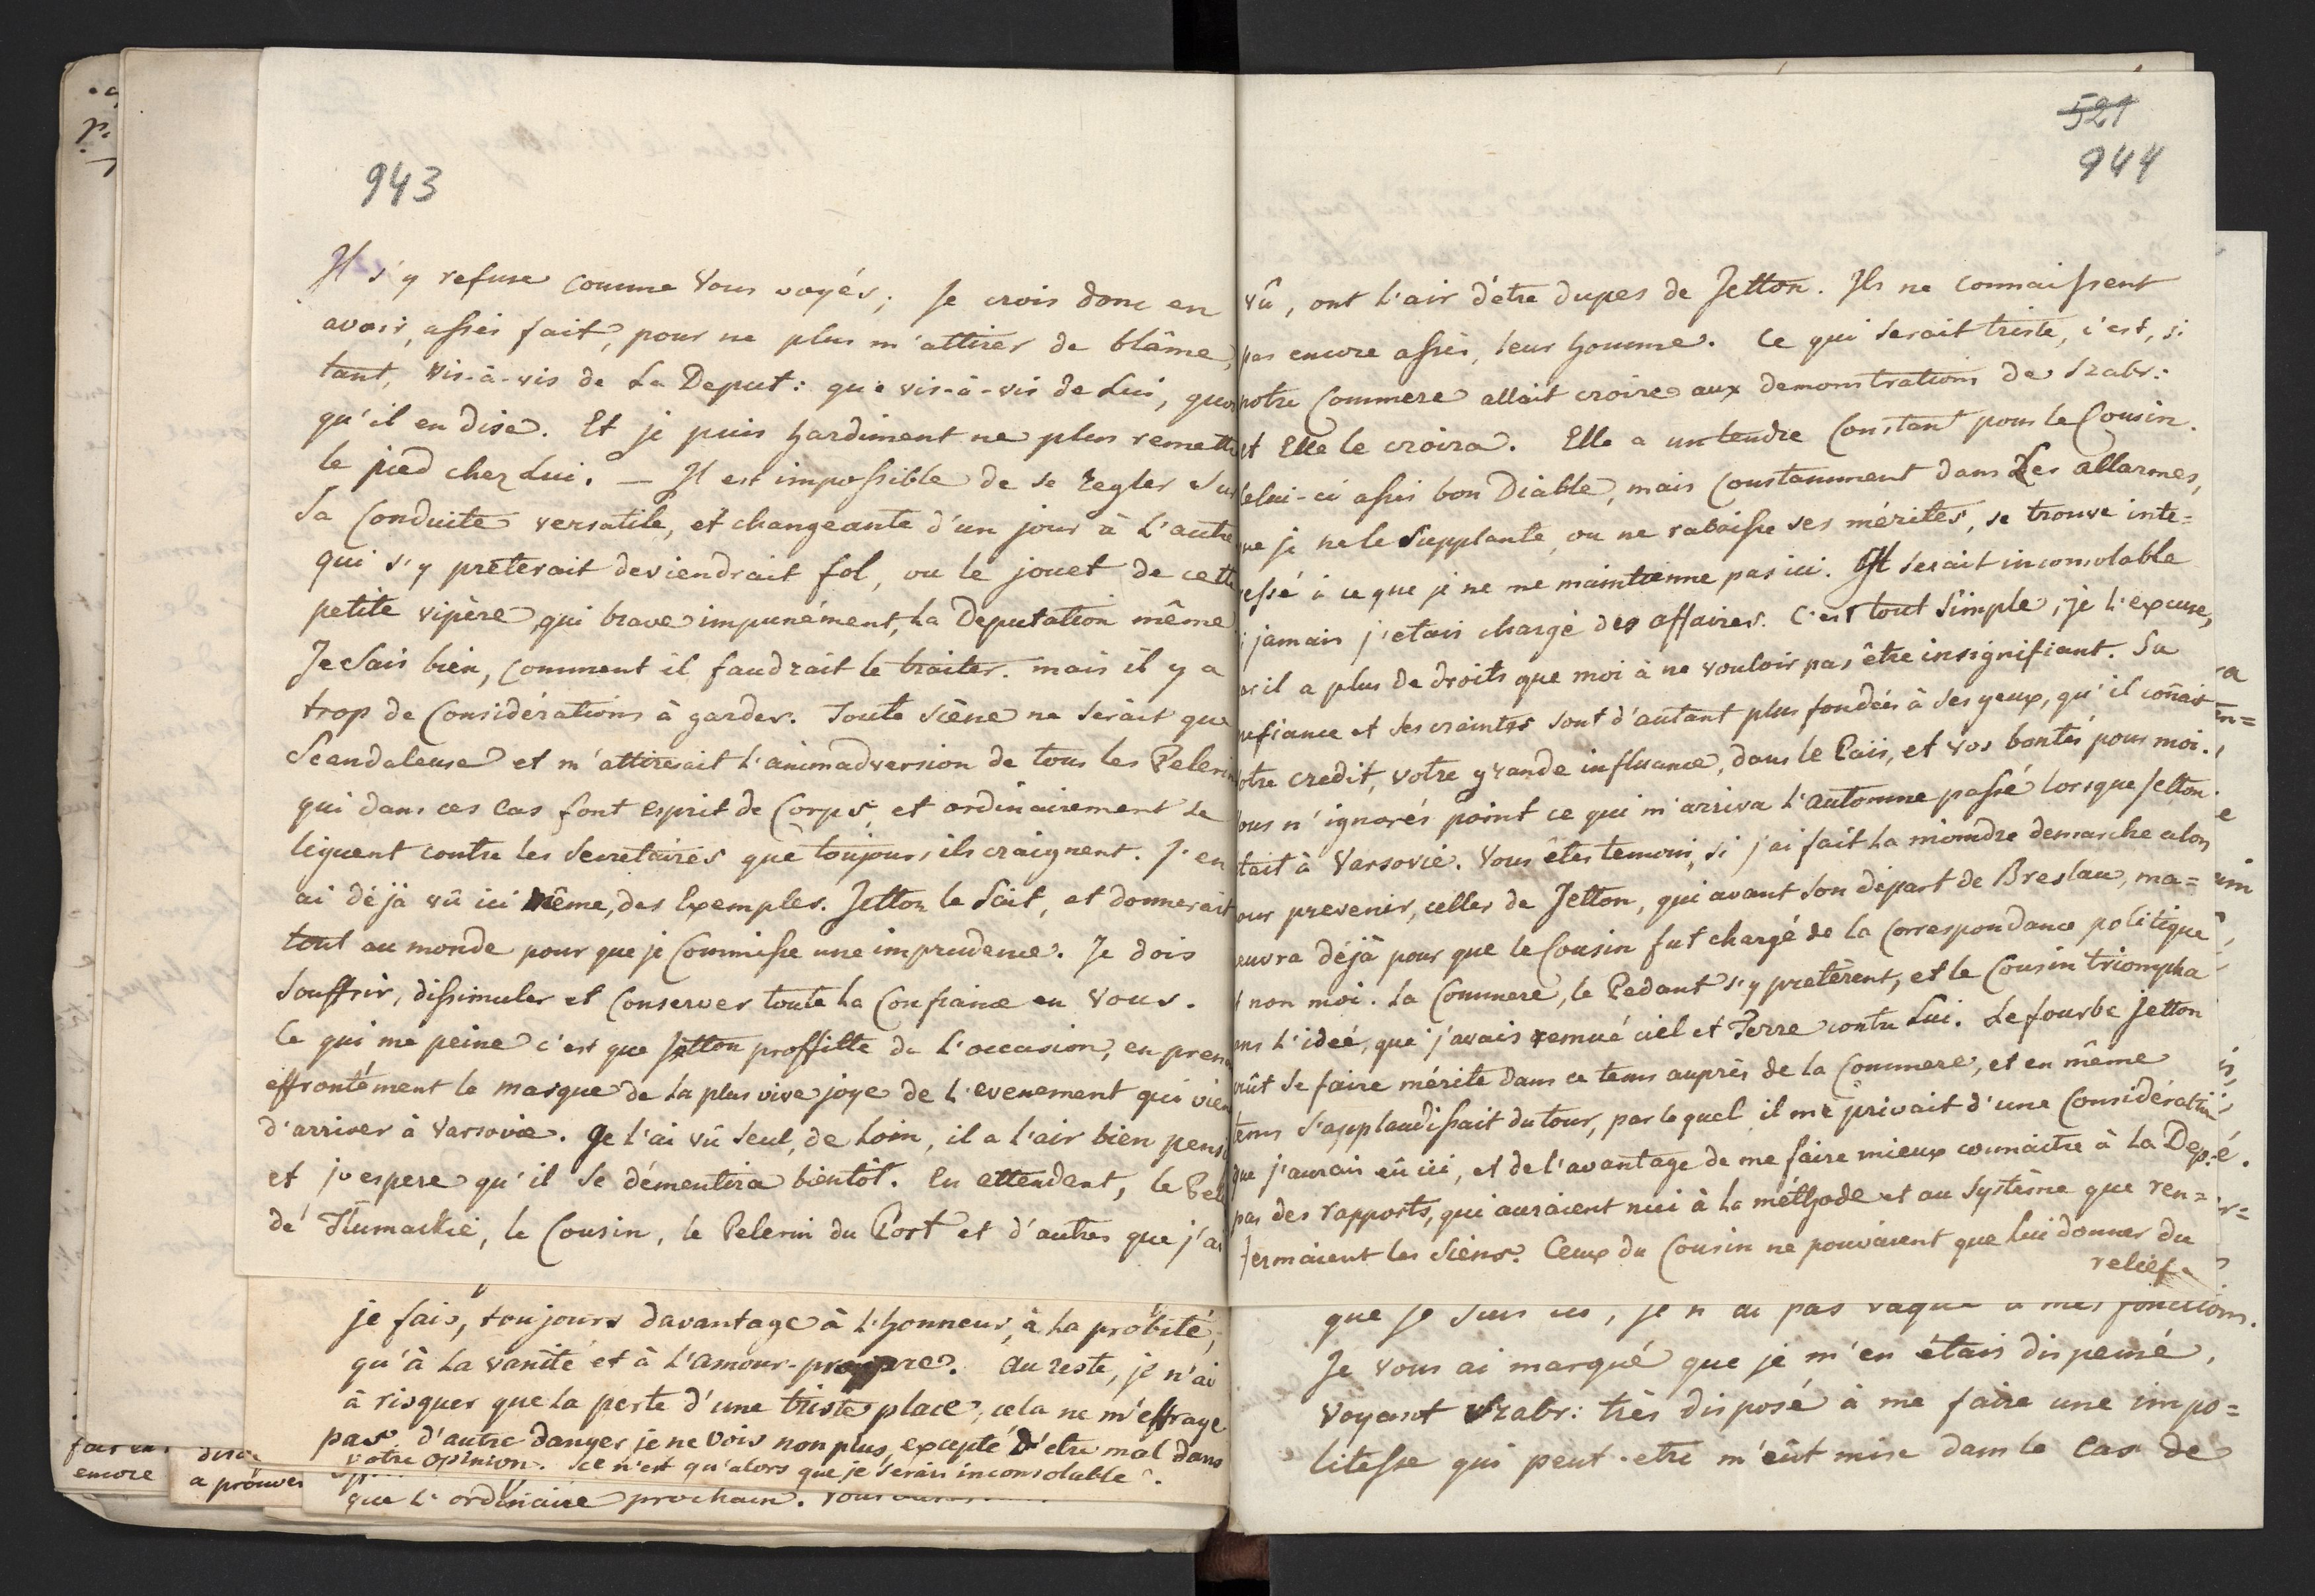 943
Il s'y refuse comme Vous voyés; Je crois donc en
avoir, assés fait, pour ne plus m'attirer de blâme,
tant, vis-à-vis de La Deput: que vis-à-vis de Lui, quoi
qu'il en dise. Et je puis hardiment ne plus remettre
le pied chez Lui. — Il est impossible de se regler sur
sa Conduite versatile, et changeante d'un jour à l'autre
qui s'y prêterait deviendrait fol, ou le jouet de cette
petite vipère, qui brave impunément, La Deputation même
Je sais bien, comment il faudrait le traiter. mais il y a
trop de Considérations à garder. Toute scène ne serait que
Scandaleuse et m'attirerait l'animadversion de tous les Pelerin
qui dans ces Cas font esprit de Corps, et ordinairement se
liguent contre les Secretaires que toujours ils craignent. J'en
ai déjà vû ici même, des Exemples. Jetton le sait, et donnerait
tout au monde pour que je Commisse une imprudence. Je dois
souffrir, dissimuler et Conserver toute la Confiance en Vous.
Ce qui me peine c'est que Jetton proffitte de l'occasion, en pren
effrontément le masque de la plus vive joye de l'evenement qui vien
d'arriver à Varsovie. Je l'ai vû seul, de loin, il a l'air bien pensi
et j'espere qu'il se démentira bientôt. En attendent, le Pel
de Tlumackie, le Cousin, le Pelerin du Port et d'autres que j'ai
je fais, toujours davantage à l'honneur, à la probité,
qu'à la vanité et à l'amour-propre. Au reste, je n'ai
à risquer que la perte d'une triste place, cela ne m'effraye
pas d'autre danger je ne vois non plus, excepté d'etre mal dans
votre opinion. Ce n'est qu'alors que je serais inconsolable.
que l'ordinaire prochain.
521
944
vû, ont l'air d'être dupes de Jetton. Ils ne connaissent
pas encore assés, leur homme. Ce qui serait triste, c'est, si
notre Commere allait croire aux demonstrations de Szabr:
et Elle le croira. Elle a un tendre Constant pour le Cousin.
Celui-ci assés bon Diable, mais Constamment dans Les allarmes,
que je ne le Supplante, ou ne rabaisse ses mérites, se trouve inte=
ressé à ce que je ne me maintienne pas ici. Il serait inconsolable
si jamais j'etais chargé des affaires. C'est tout simple, je l'excuse,
car il a plus de droits que moi à ne vouloir pas être insignifiant. Sa
mefiance et ses craintes sont d'autant plus fondées à ses yeux, qu'il coñait
votre credit, votre grande influance, dans le Païs, et vos bontés pour moi.
Vous n'ignorés point ce qui m'arriva l'automne passé lorsque Jetton
etait à Varsovie. Vous êtes temoin, si j'ai fait la moindre demarche alors
pour prevenir, celles de Jetton, qui avant son départ de Breslau, ma=
nœuvra déjà pour que le Cousin fut chargé de la Correspondance politique
et non moi. La Commere, le Pedant s'y pretèrent, et le Cousin triompha
dans l'ideé, que j'avais remué ciel et Terre contre Lui. Le fourbe Jetton
voulût se faire mérite dans ce tems auprès de la Commere, et en même
tems s'applaudissait du tour, par lequel il me privait d'une Considération
que j'aurais eû ici, et de l'avantage de me faire mieux connaitre à La Dep:
par des rapports, qui auraient nui à la méthode et au Systême que ren=
fermaient les Siens. Ceux du Cousin ne pouvaient que lui donner du
relief.
que je suis ici, je n'ai pas vaqué à mes fonctions.
Je vous ai marqué que je m'en étais dispensé,
voyant Szabr: très disposé à me faire une impo=
litesse qui peut-etre m'eût mise dans le Cas de
encore
a prouver